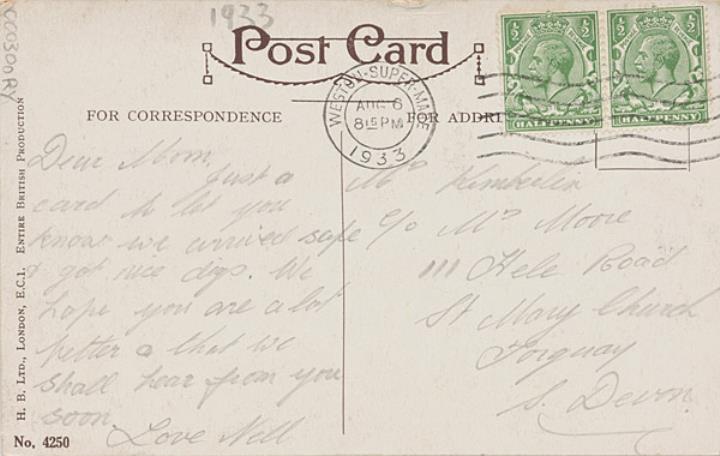 1933
CC0300RY
Post Card
WESTON-SUPER-MARE
AUG 6
8 15 PM
1933
½ ½
HALFPENNY
½ ½
HALFPENNY
FOR CORRESPONDENCE
FOR ADDRE
Dear Mom,
Just a
card to let you
know we arrived safe
& got nice digs. We
hope you are a lot
better & that we
shall hear from you
soon.
Love Nell
Mrs Kimberlin
c/o Mrs Moore
111 Hele Road
St Mary Church
Torquay
S. Devon.
H. B. LTD., LONDON, E.C.1. ENTIRE BRITISH PRODUCTION
No. 4250